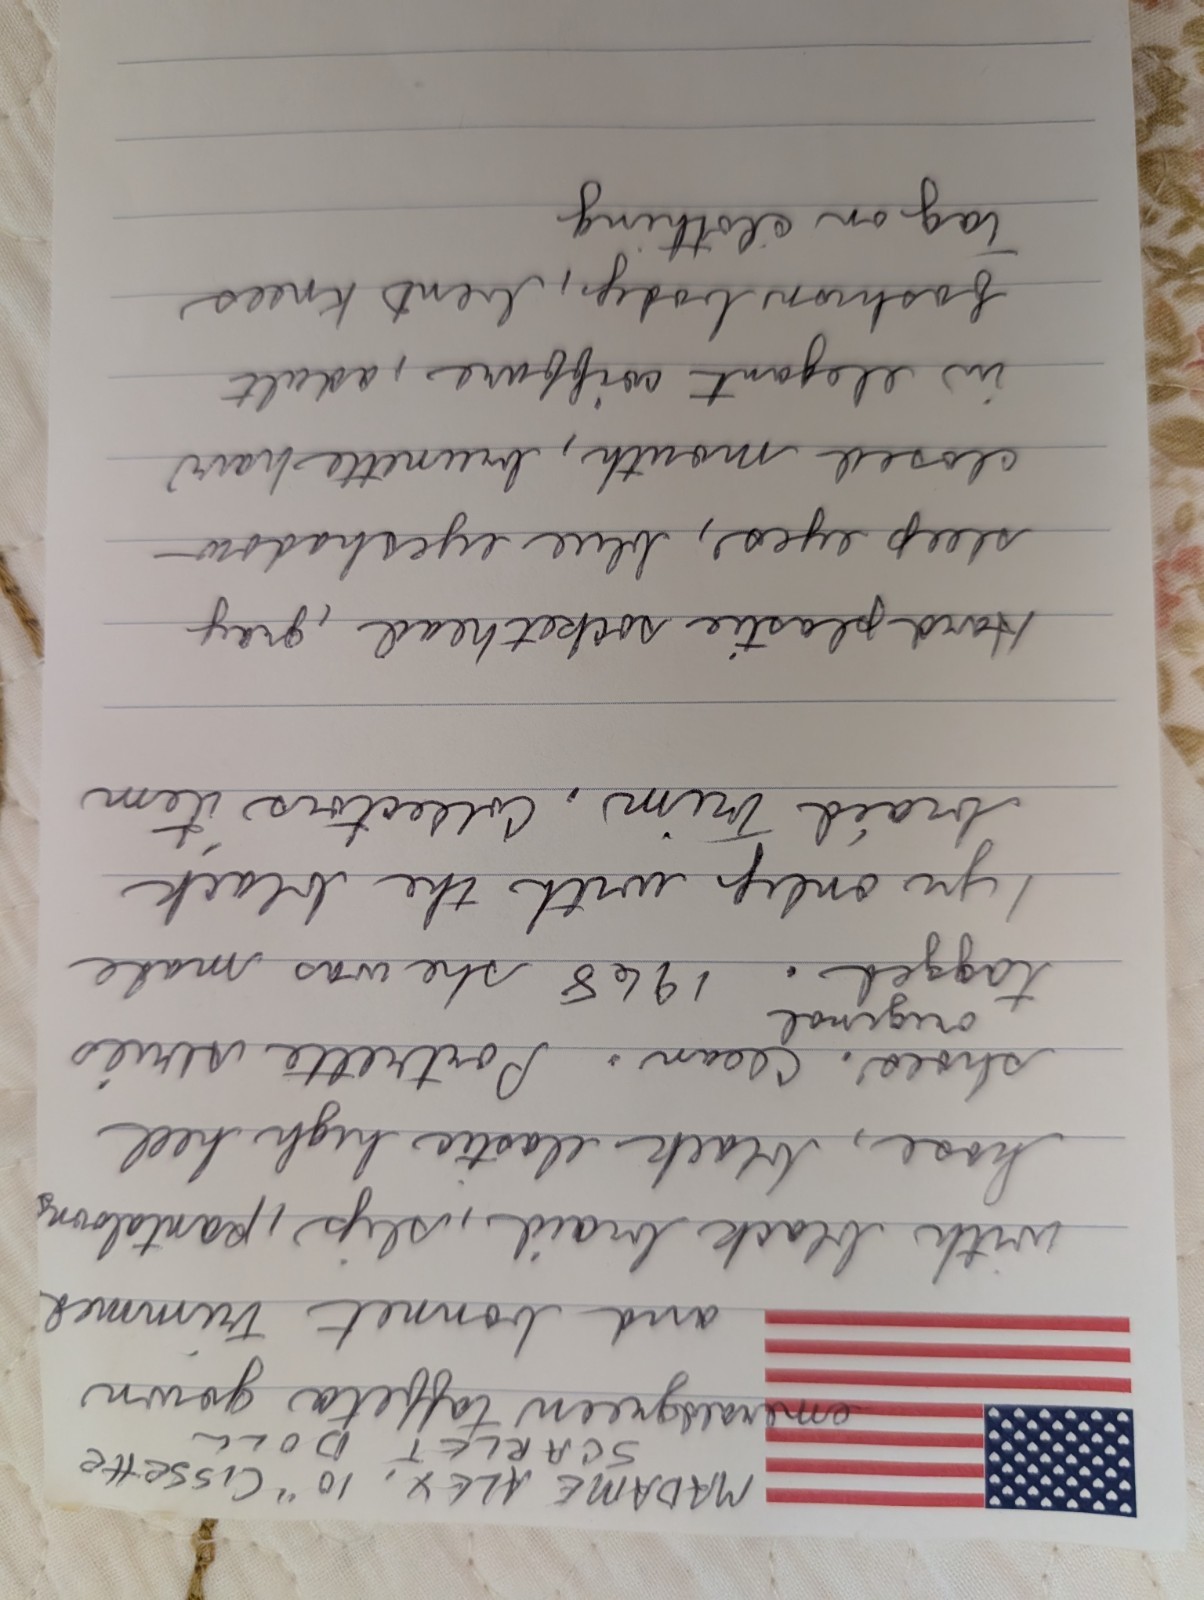 MADAME ALEX, 10" CISSETTE
SCARLET DOLL
emeraldgreen taffeta gown
and bonnet trimmed
with black braid, slip, pantaloons
hose, black elastic high heel
shoes. Clean. Portrette series
original
tagged. 1968 she was made
1 yr only with the black
braid trim. Collectors item
Hard plastic sockethead, gray
sleep eyes, blue eyeshadow
closed mouth, brunette hair
in elegant coiffure, adult
fashion body, bent knees
Tag on clothing